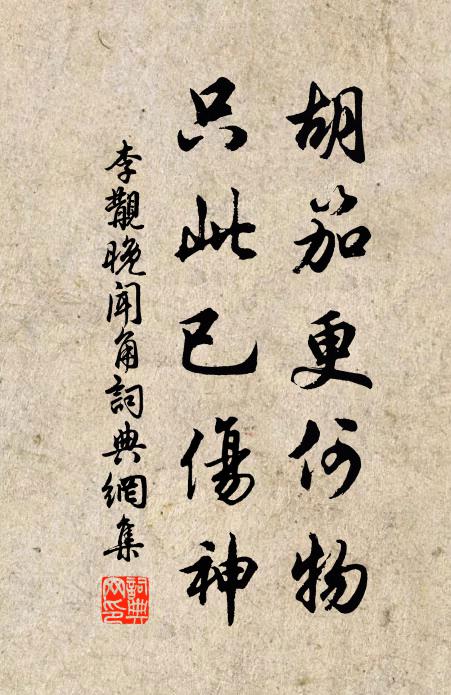 胡笳更何物
只此已傷神
李覯晚聞角詞典網集
詞典
网印